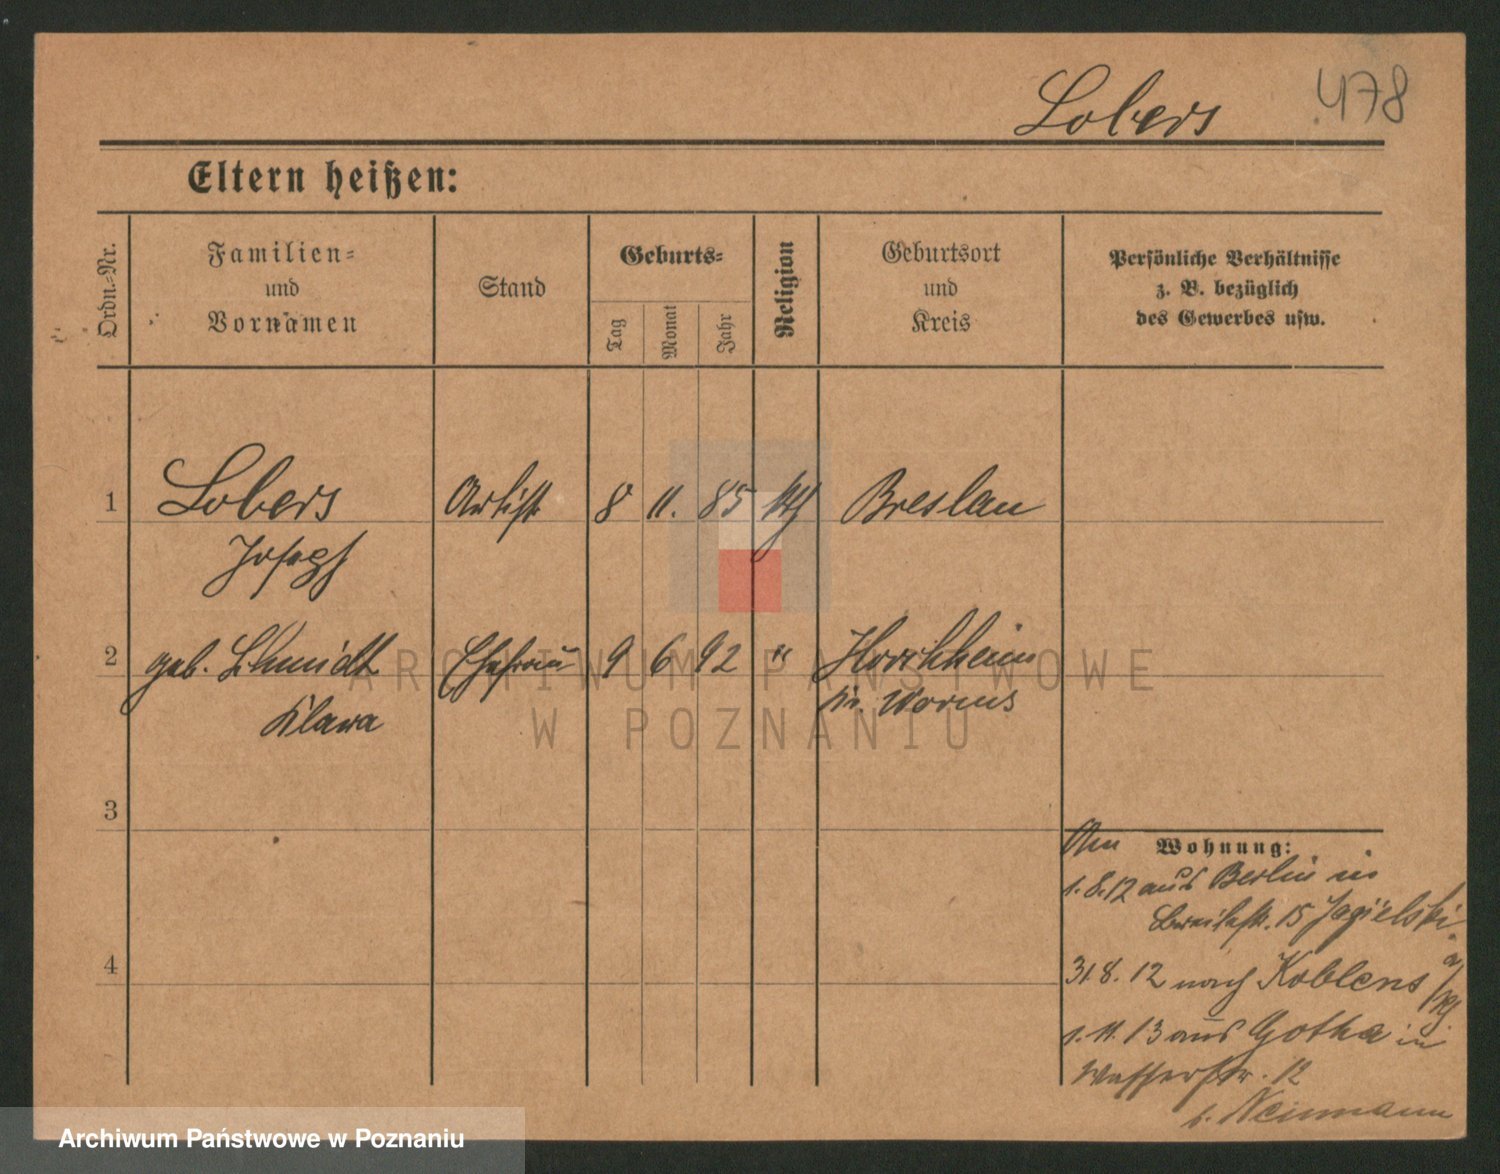 Lobers
478
Eltern heißen:
Ordn.-Nr.
Familien-
und
Vornamen
Stand
Geburts-
Tag
Monat
Jahr
Religion
Geburtsort
und
Kreis
Persönliche Verhältnisse
z. B. bezüglich
des Gewerbes usw.
1 Lobers Artist 8 11. 85 Breslau
Joseph
2 geb. Schmidt Ehefrau 9 6 92 " Horchheim
Kr. Worms
Klara
3
4
Am Wohnung:
1.8.12 aus Berlin in
Breitestr. 15 Jagielski
31.8.12 nach Koblenz a/Rh.
1.11.13 aus Gotha in
Wasserstr. 12
b. Neumann
ARCHIWUM PAŃSTWOWE
W POZNANIU
Archiwum Państwowe w Poznaniu